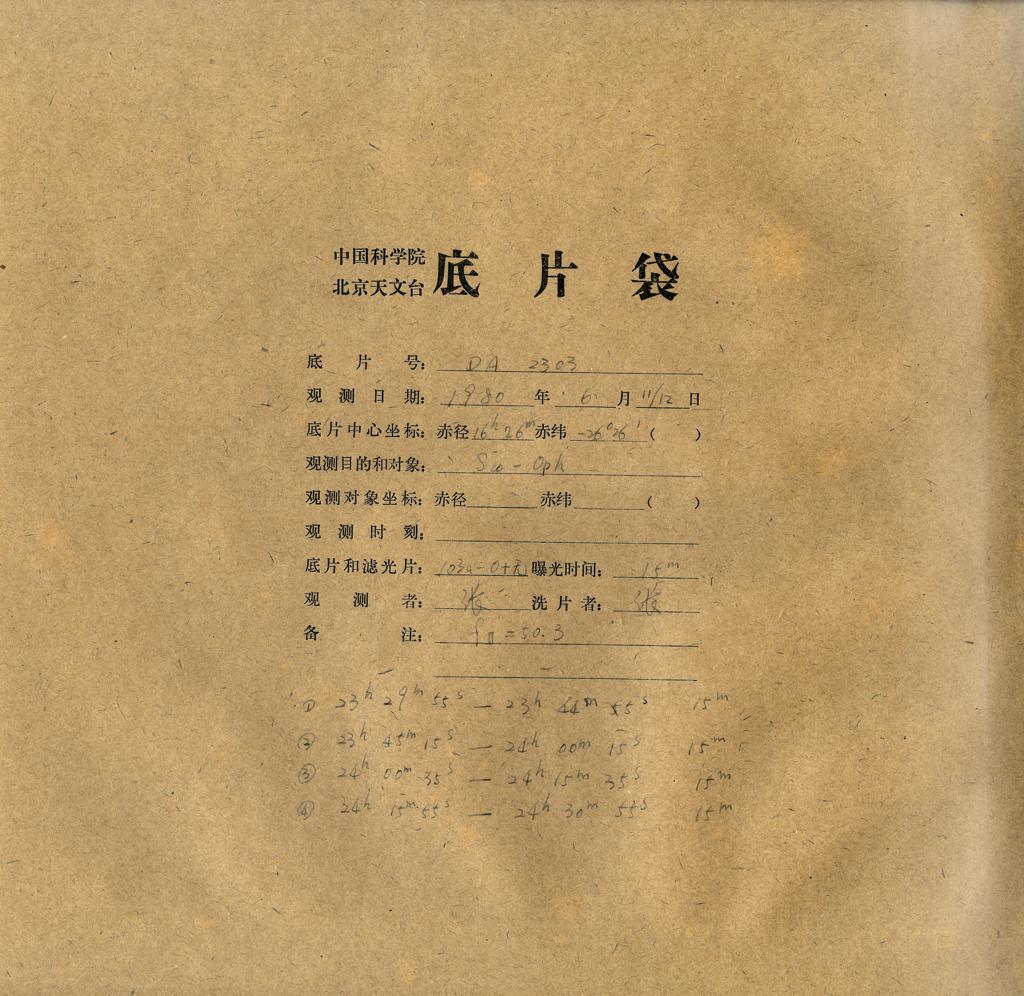 中国科学院
北京天文台
底片袋
底片号: DA 2303
观测日期: 1980 年 6 月 11/12 日
底片中心坐标: 赤径 16h 26m 赤纬 -26° 26' ( )
观测目的和对象: Sco - Oph
观测对象坐标: 赤径 赤纬 ( )
观测时刻:
底片和滤光片: 103a-O+无 曝光时间: 15m
观测者: 张 洗片者: 张
备注: =50.3
① 23h 29m 55s — 23h 44m 55s 15m
② 23h 45m 15s — 24h 00m 15s 15m
③ 24h 00m 35s — 24h 15m 35s 15m
④ 24h 15m 55s — 24h 30m 55s 15m